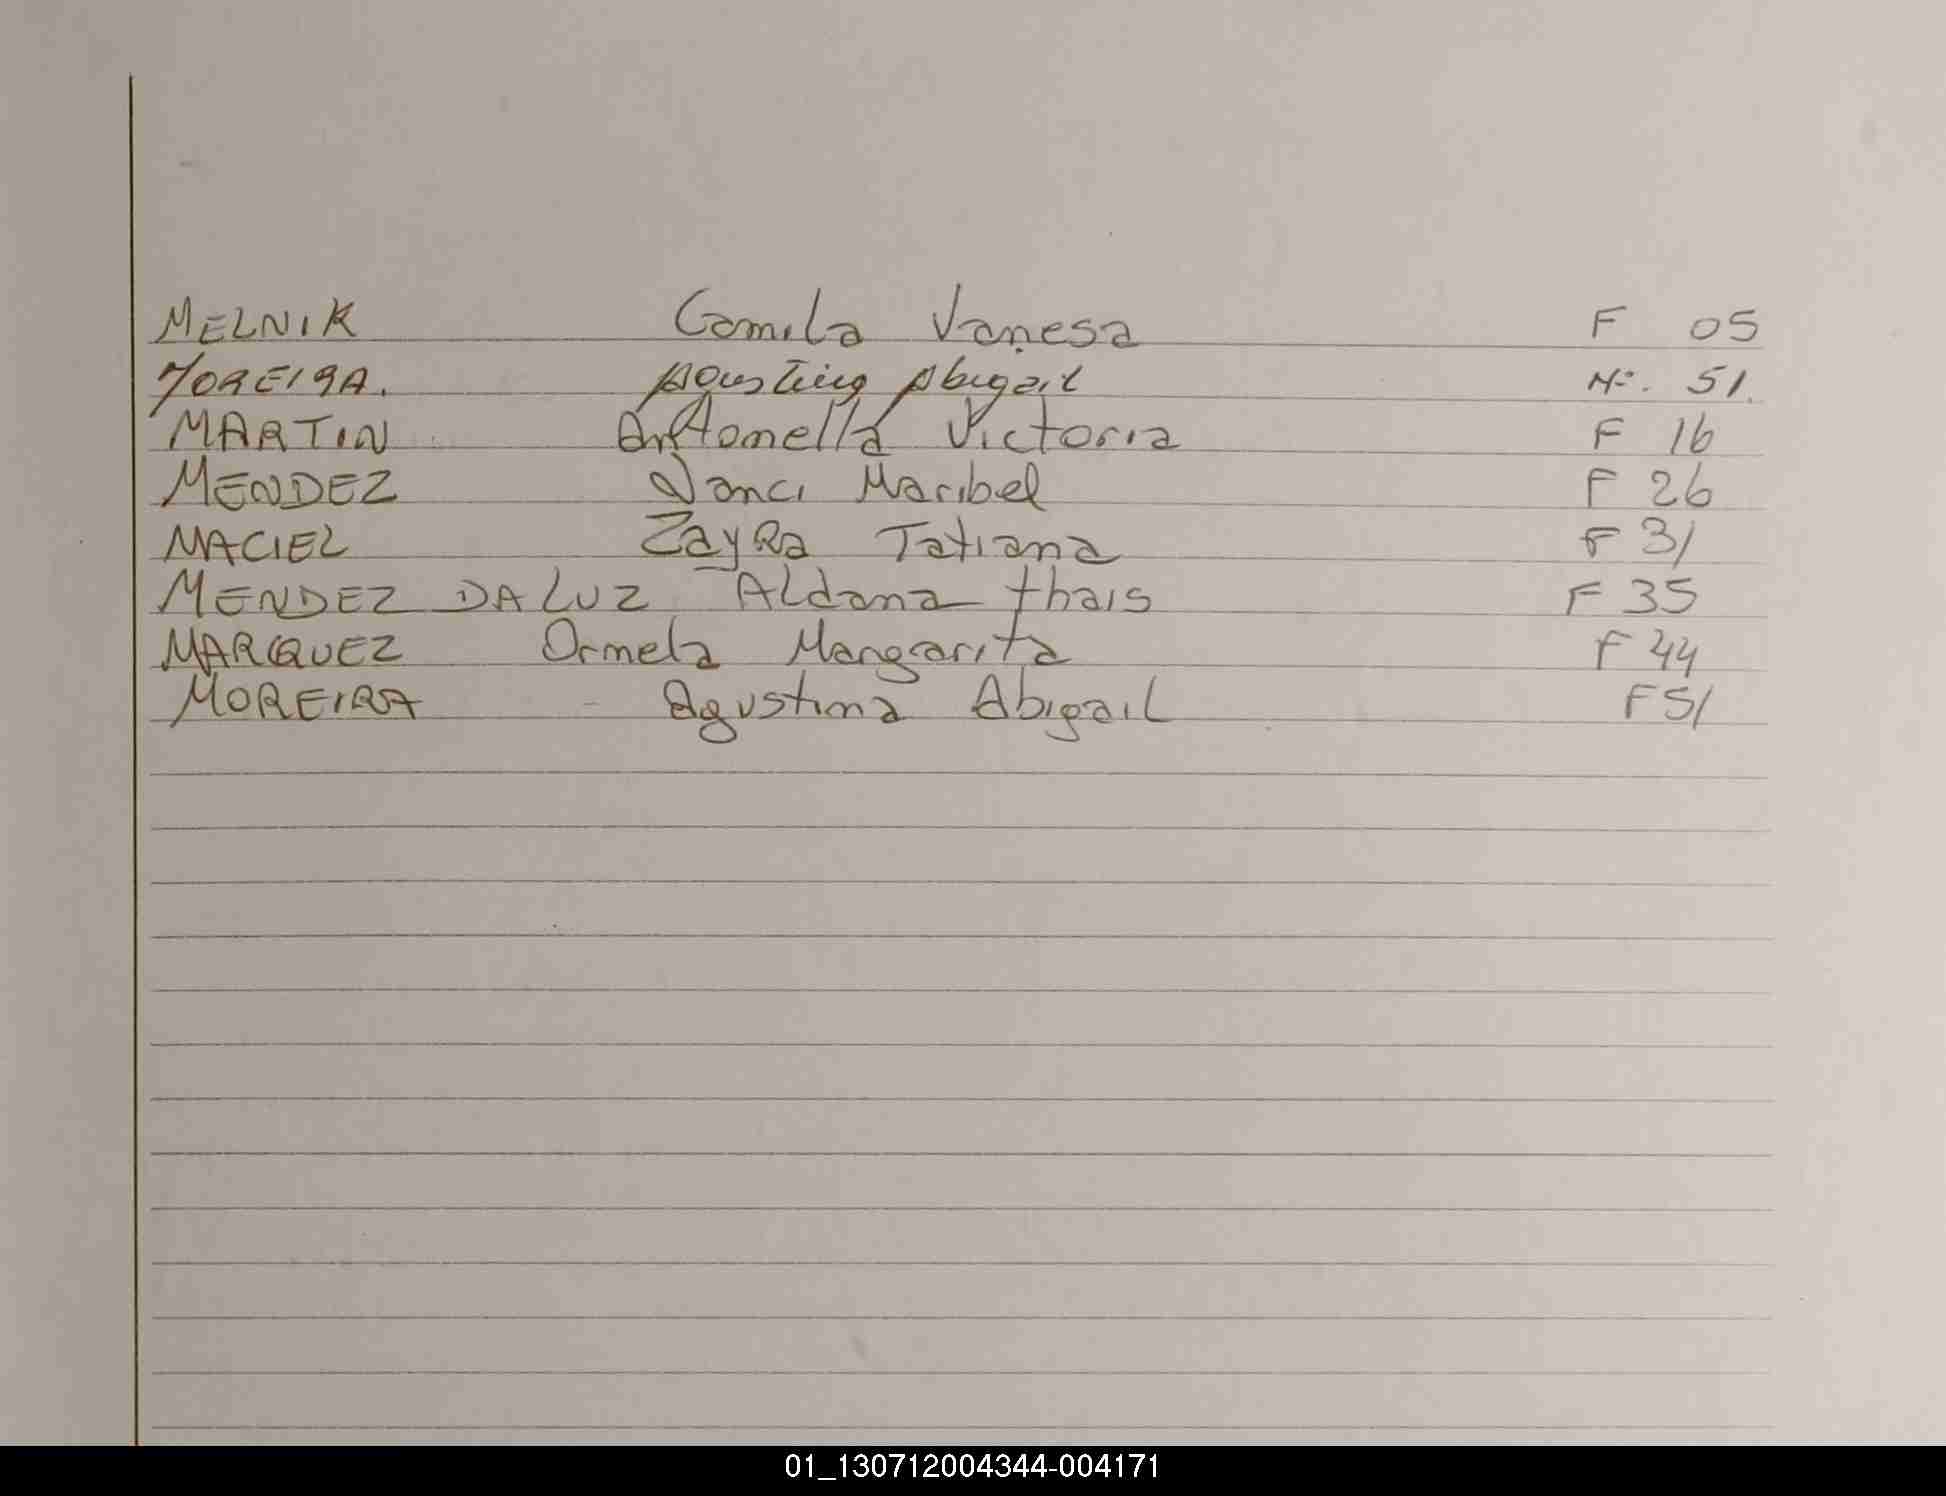 MELNIK Camila Vanesa F 05
MOREIRA. Agustina Abigail Nº. 51.
MARTIN Antonella Victoria F 16
MENDEZ Nanci Maribel F 26
MACIEL Zayra Tatiana F 31
MENDEZ DA LUZ Aldana thais F 35
MARQUEZ Ornela Margarita F 44
MOREIRA Agustina Abigail F 51
01_130712004344-004171